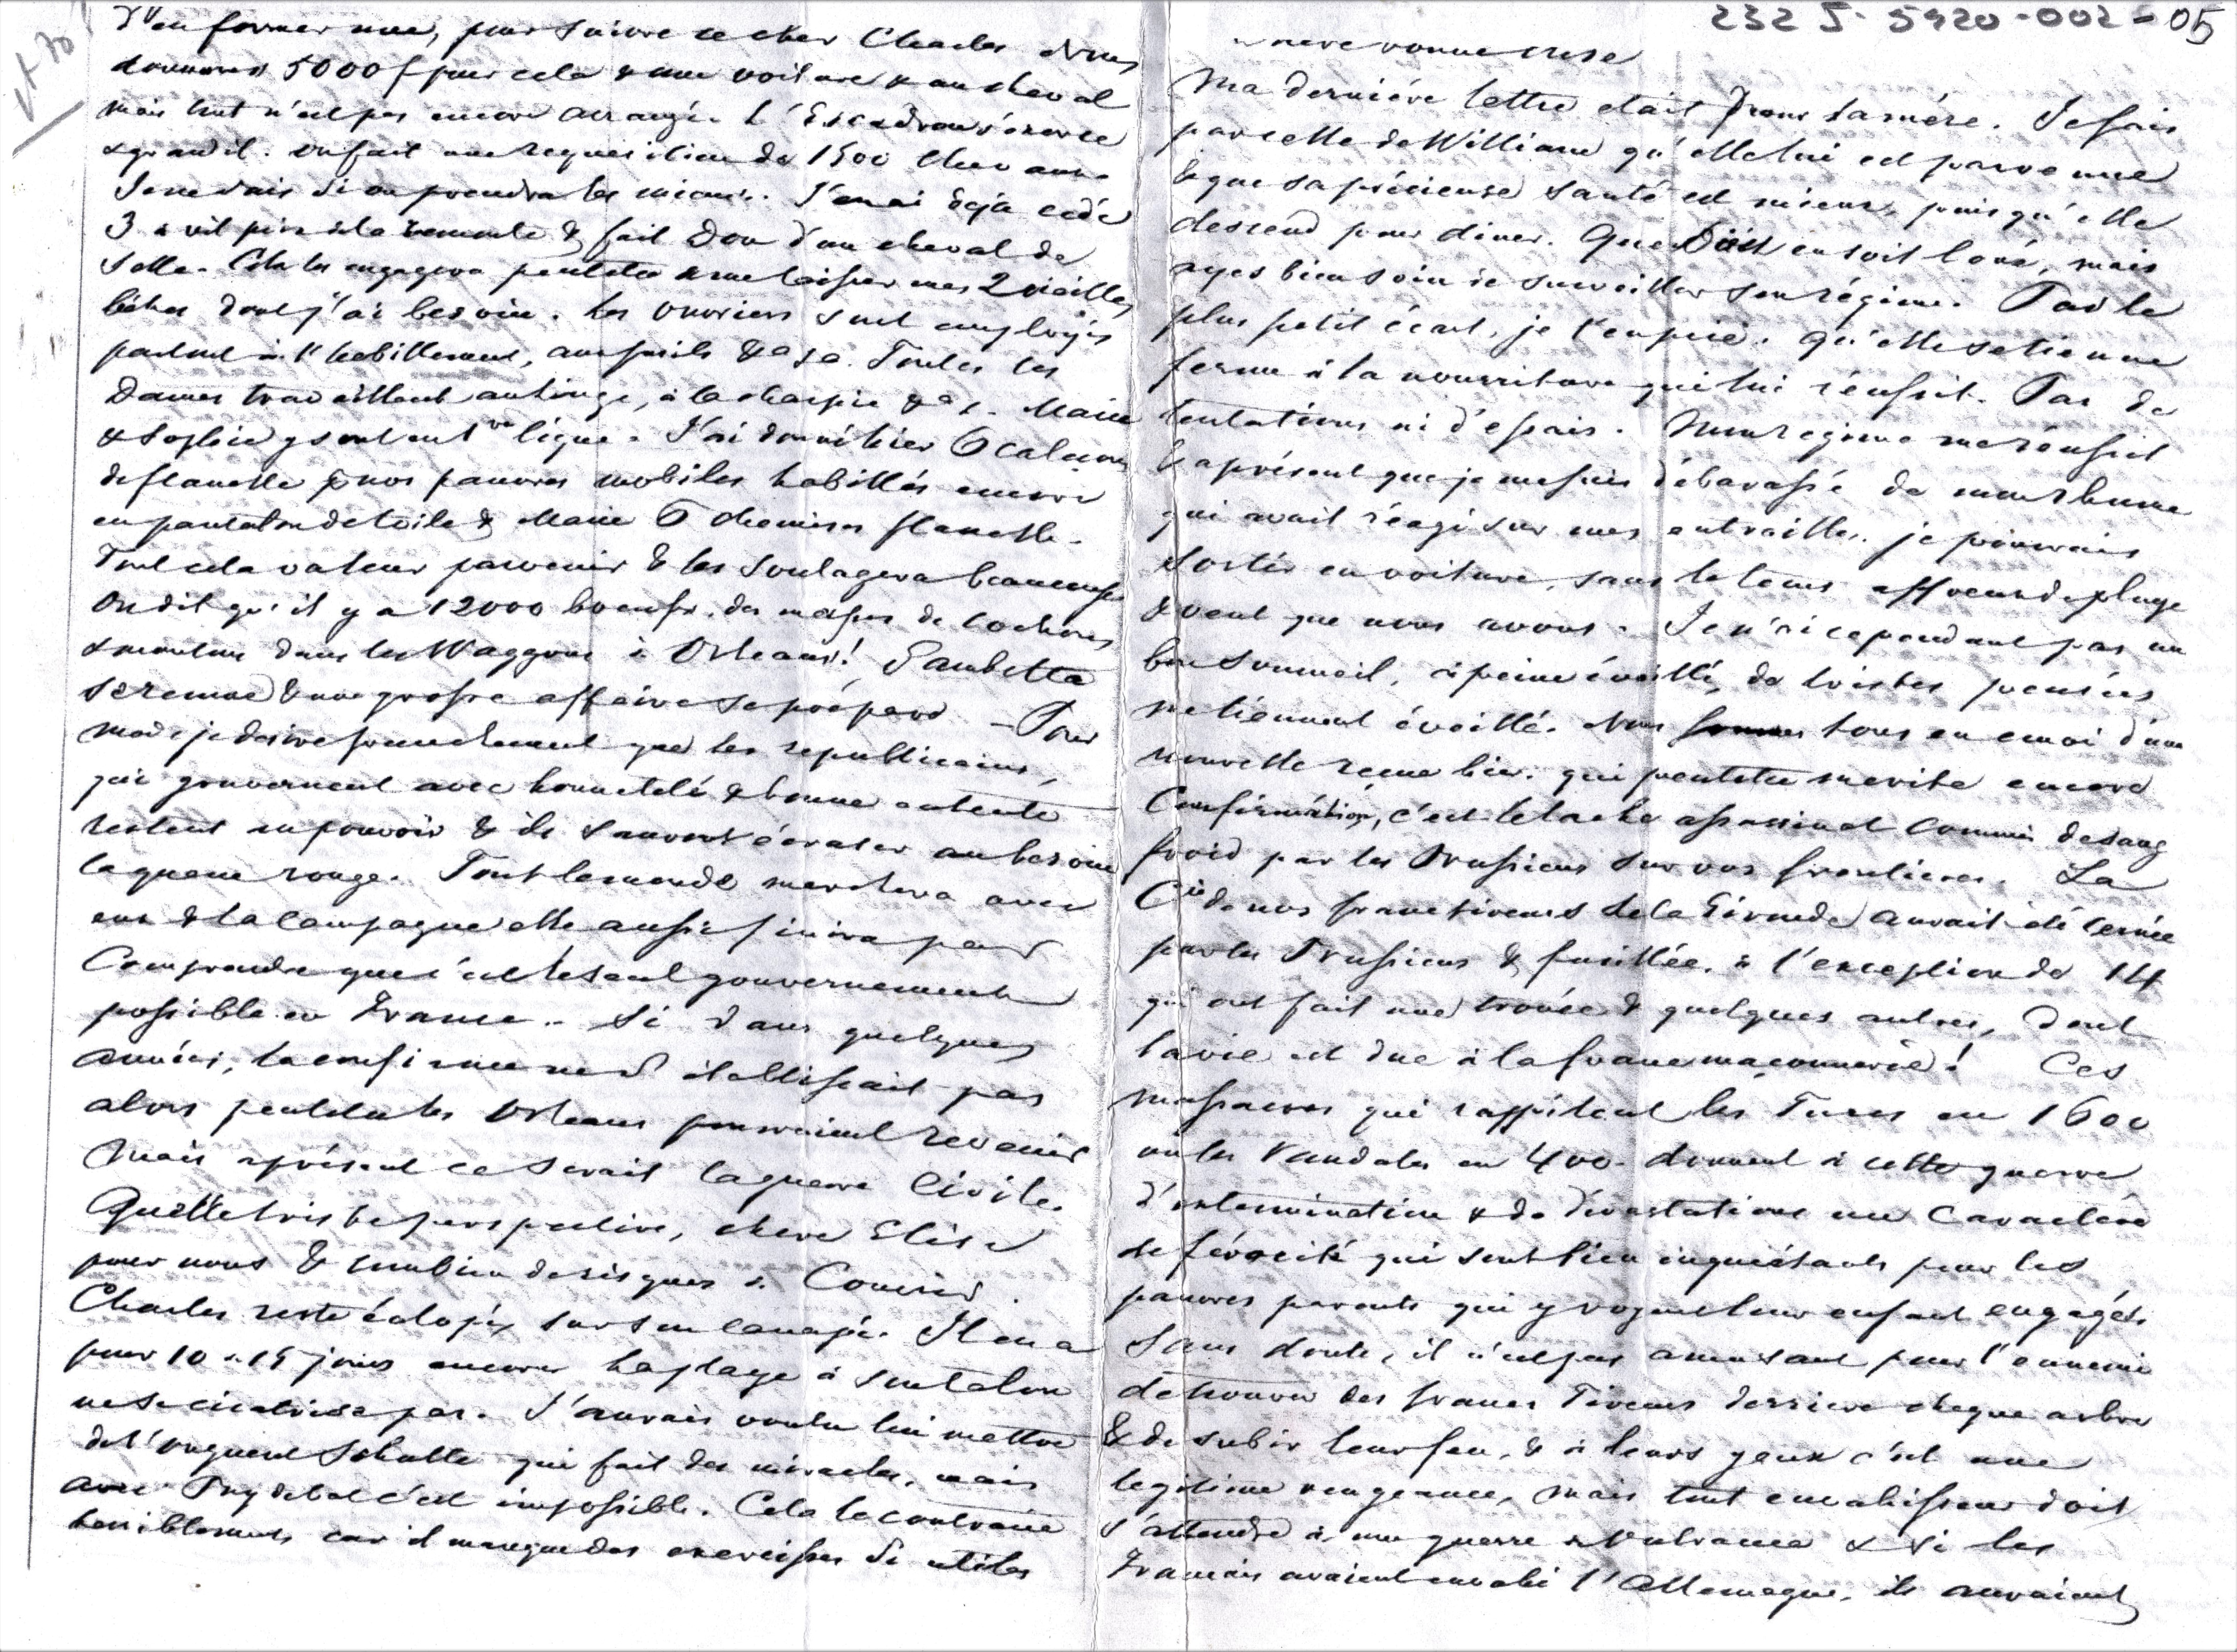 232 J. 5920-002-05
d'en former une, pour suivre ce cher Charles & nous
donnerons 5000 f pour cela & une voiture & un cheval
mais tout n'est pas encore arrangé. L'Escadron s'exerce
& grandit. On fait une requisition de 1500 chevaux.
Je ne sais si on prendra les miens. J'en ai déjà cédé
3 à vil prix à la remonte & fait don d'un cheval de
selle. Cela les engagera peutetre à me laisser mes 2 vieilles
bêtes dont j'ai besoin. Les ouvriers sont employés
partout à l'habillement, aux fusils &a &a. Toutes les
Dames travaillent au linge, à la charpie &a &. Marie
& Sophie y sont en 1re ligne. J'ai donné hier 6 caleçons
de flanelle pr nos pauvres mobiles habillés encore
en pantalon de toile & Marie 6 chemises flanelle.
Tout cela va leur parvenir & les soulagera beaucoup
On dit qu'il y a 12000 boeufs, des masses de cochons
& moutons dans les Waggons à Orleans! Gambetta
se remue & une grosse affaire se prépare — Pour
moi je desire franchement que les republicains,
qui gouvernent avec honnetété & bonne entente
restent au pouvoir & ils sauront écraser au besoin
la queue rouge. Tout le monde marchera avec
eux & la campagne elle aussi finira par
Comprendre que c'est le seul gouvernement
possible en France. Si dans quelques
années, la confiance ne s'établissait pas
alors peutetre les Orleans pourraient revenir
Mais aprésent ce serait la guerre Civile.
Quelle triste perspective, chere Elise
pour nous & combien de risques à Courir.
Charles reste éclopé sur son canapé. Il en a
pour 10 à 15 jours encore la playe à son talon
ne se cicatrise pas. J'aurais voulu lui mettre
de l'onguent Schulte qui fait des miracles, mais
avec c'est impossible. Cela le contrarie
terriblement car il manque des exercisses si utiles
Ma derniére lettre etait pour ta mére. Je sais
par celle de William qu'elle lui est parvenue
& que sa précieuse santé est mieux, puis qu'elle
descend pour diner. Que Dieu en soit loué, mais
ayes bien soin de surveiller son régime. Pas le
plus petit écart, je t'en prie. Qu'elle se tienne
ferme à la nourriture qui lui réussit. Pas de
tentations ni d'essais. Mon regime me réussit
& aprésent que je me suis débarassé de mon rhume
qui avait réagi sur mes entrailles, je pourrais
sortir en voiture, sans le tems affreux de pluye
& vent que nous avons. Je n'ai cependant pas un
bon sommeil, à peine éveillé, de tristes pensées
me tiennent éveillé. Nous sommes tous en emoi d'une
nouvelle recue hier qui peutetre merite encore
Confirmation, c'est le lache assassinat commis de sang
froid par les Prussiens sur vos frontieres. La
Cie de nos francs tireurs de la Gironde aurait été cernée
par les Prussiens & fusillée, à l'exception de 14
qui ont fait une trouée & quelques autres, dont
la vie est due à la franc maçonnerie! Ces
massacres qui rappellent les Turcs en 1600
ou les Vandales en 400 donnent à cette guerre
d'extermination & de dévastations un caractère
de férocité qui sont bien inquiétants pour les
pauvres parents qui y voyent leur enfant engagés.
Sans doute, il n'est pas amusant pour l'ennemi
de trouver des francs Tireurs derriere chaque arbre
& de subir leur feu, & à leurs yeux c'est une
legitime vengeance, mais tout envahisseur doit
s'attendre à une guerre à outrance & si les
Français avaient envahi l'Allemagne, ils auraient